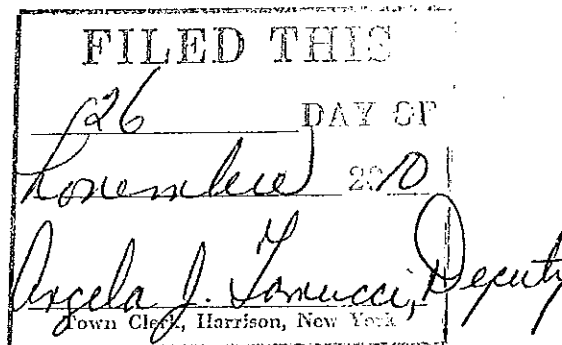 FILED THIS
26 DAY OF
November 2010
Angela J. Iannucci, Deputy
Town Clerk, Harrison, New York